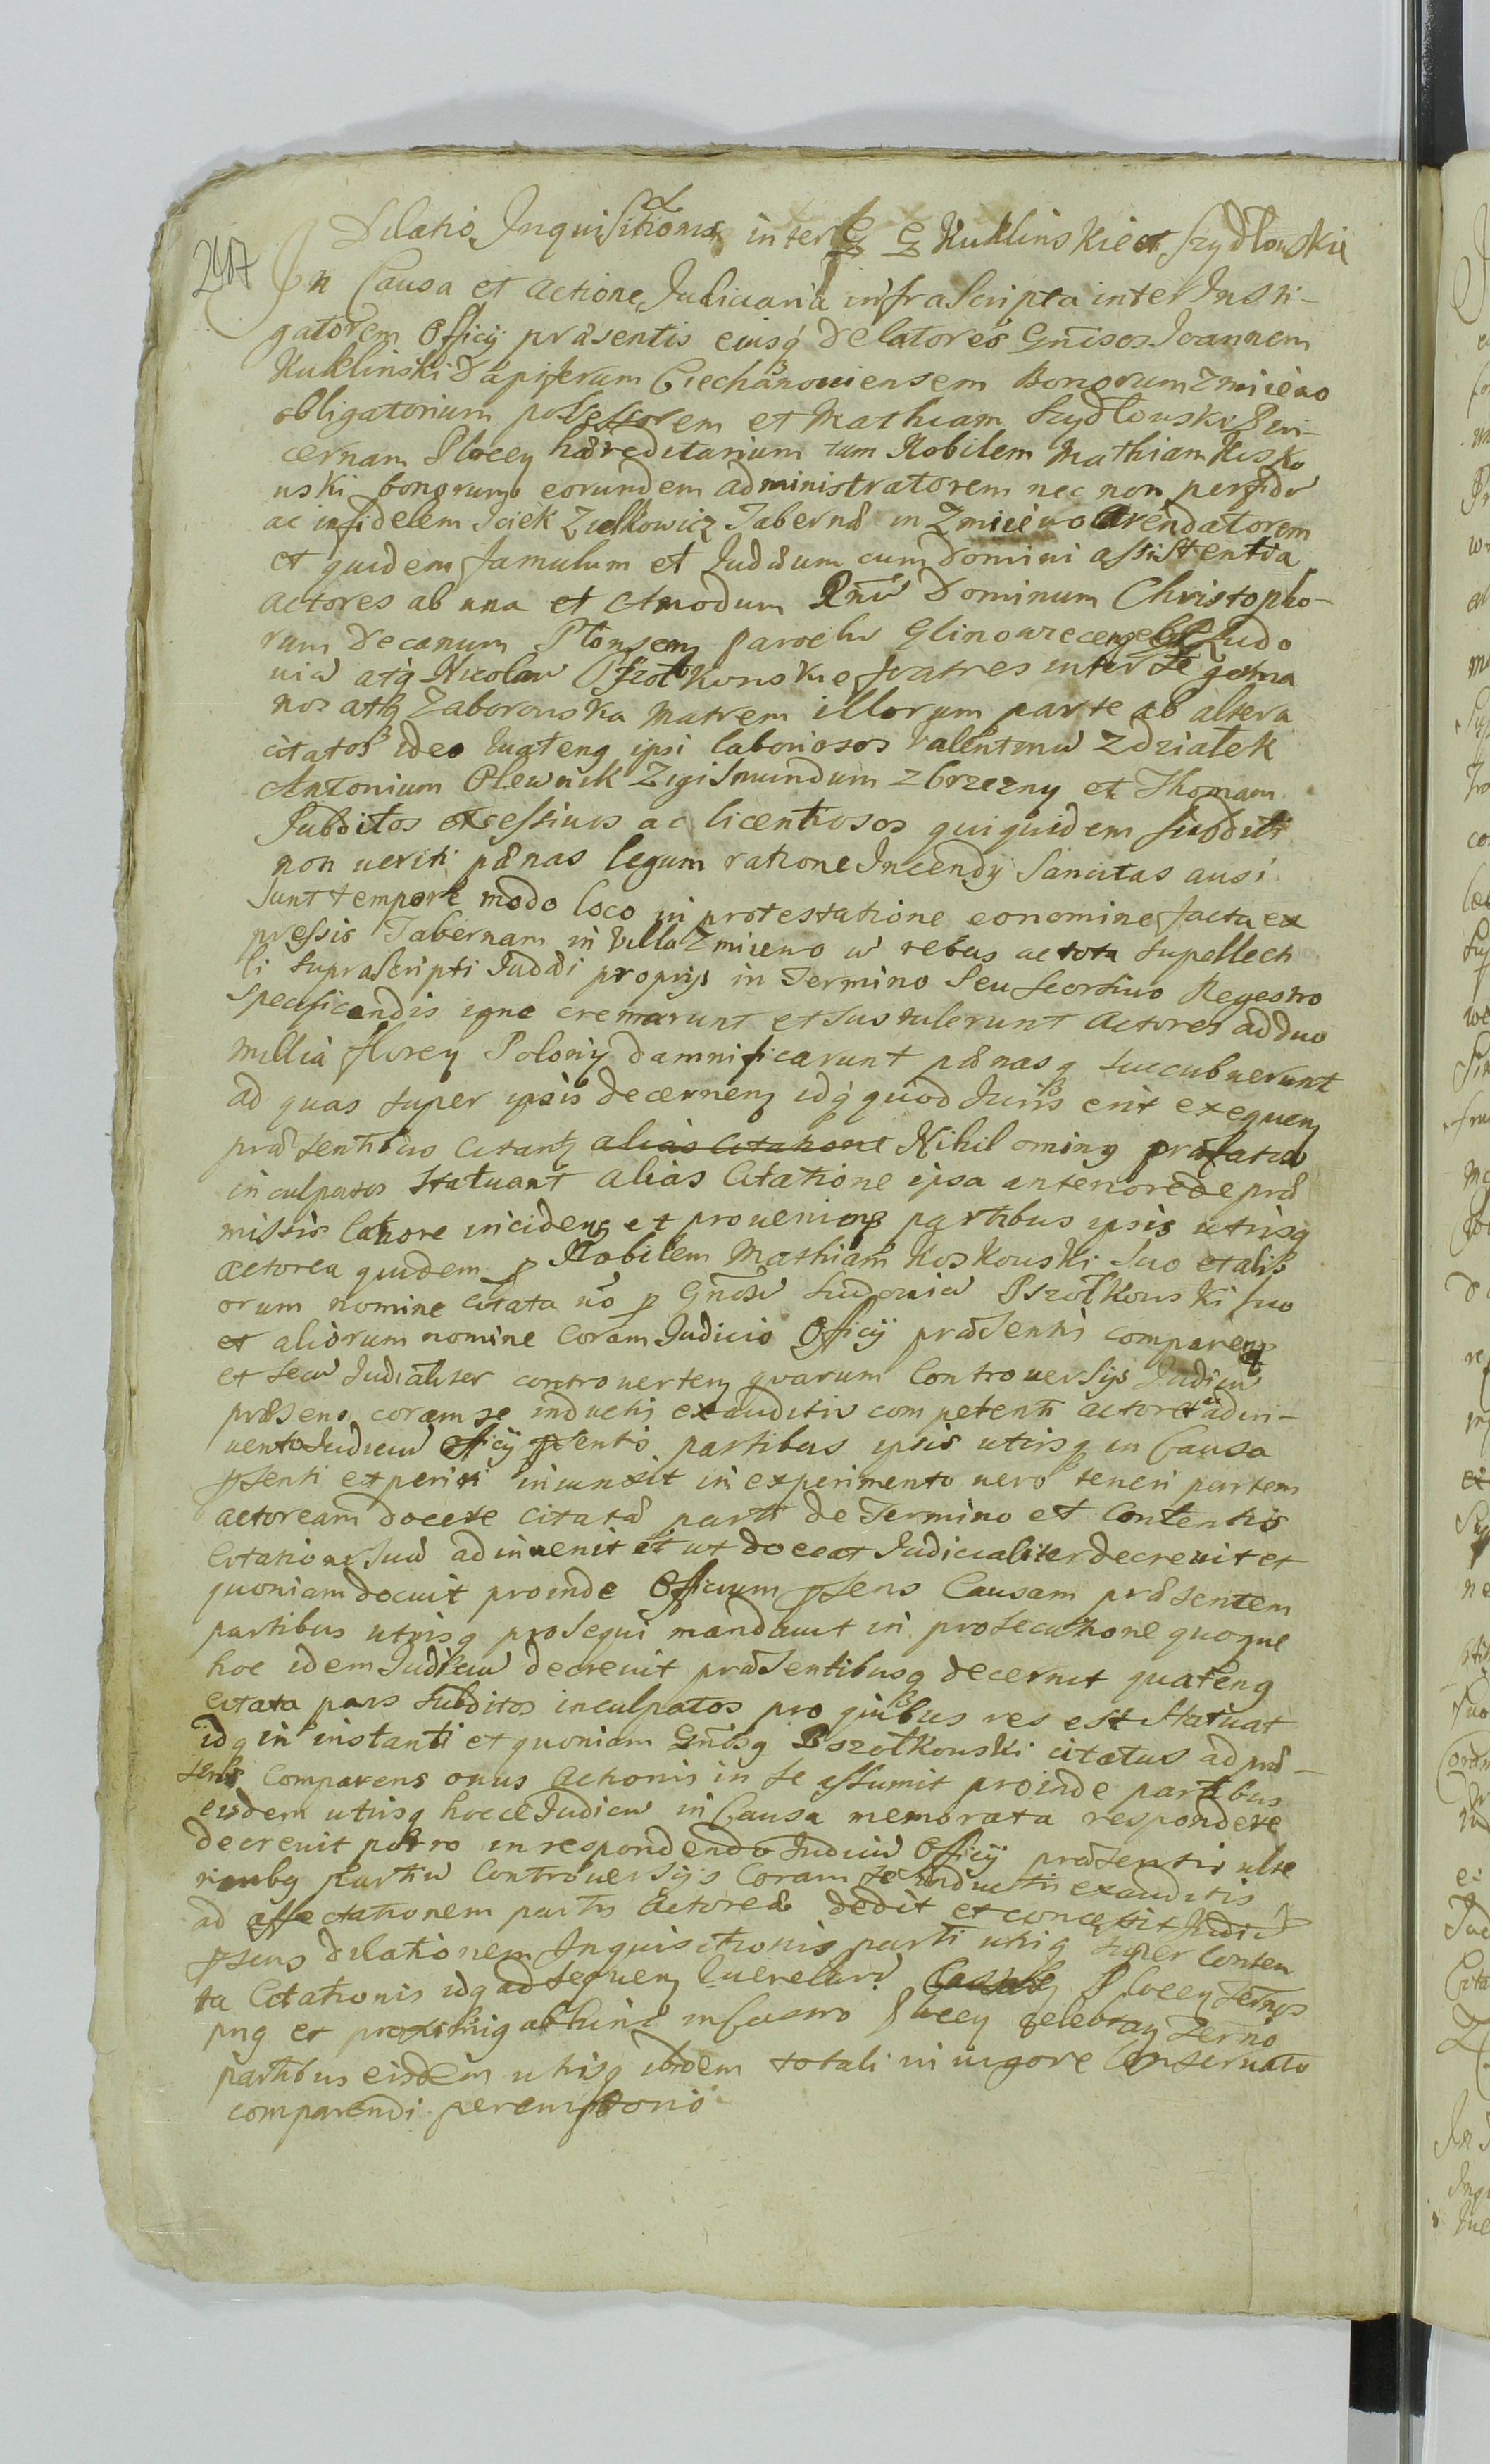 Dilatio Inquisitionis inter GG Kuklinskie et Szydłowskie
247 In Causa et actione Judiciaria infrascripta inter Insti-
gatorem Officij præsentis eiusq delatores Gnisos Joannem
Kuklinski Dapiferum Ciechanouiensem Bonorum Zmiieẃo
obligatorium possessorem et Mathiam Szydłouski Pin-
cernam Plocen hæreditarium tum Nobilem Mathiam Kosko
uski bonorum eorundem administratorem nec non perfidū
ac infidelem Iciek Zielkowicz Tabernæ in Zmiiewo Arendatorem
et quidem famulum et Judæum cum Domini assistentia
actores ab una et Amodum Rndū Dominum Christopho-
rum Decanum Plonsen parochū Glinowiecen Ludo
uicū atq Nicolaū Pszołkouskie fratres inter se germa
nos atq Zaborouska matrem illorum parte ab altera
citatos ideo quateng ipsi laboriosos Valentinū Zdziałek
Antonium Olewnik Zigismundum Zbrzezny et Thomam
Subditos excessiuos ac licentiosos quiquidem subditi
non ueriti pænas legum ratione Incendij Sancitas ausi
sunt tempore modo loco in protestatione eonomine facta ex
pressis Tabernam in Villa Zmiiewo cū rebus ac tota supellecti
li suprascripti Judæi proprijs in Termino seu seorsiuo Regestro
specificandis igne cremarunt et sustulerunt Actores ad duo
millia floren Polonij damnificarunt pænasq succubuerunt
ad quas super ipsis decernen idq quod Juris erit exequen
præsentibus citant alias Citatione Nihil oming præfatos
inculpatos Statuant alias Citatione ipsa anteriore de præ
missis latiore inciden et prouenien partibus ipsis utrisq
actorea quidem p Nobilem Mathiam Koskouski suo et ali
orum nomine citata uō p Gnōsū Ludouicū Pszołkouski suo
et aliorum nomine Coram Judicio Officij præsentis comparen
et secū Judialiter controuerten quarum Controuersijs Judiciū
præsens coram se inductis exauditis competenti actoreatu adin-
uento Judiciū Officij pſentis partibus ipsis utrisq in Causa
pſenti experiri iniunxit in experimento uero teneri partem
actoream docere citatæ parti de Termino et Contentis
Citationis Suæ adinuenit et ut doceat Judicialiter decreuit et
quoniam docuit proinde Officium pſens Causam præsentem
partibus utrisq prosequi mandauit in prosecutione quoque
hoc idem Judiciū decreuit præsentibusq decernit quateng
citata pars subditos inculpatos pro quibus res est statuat
idq in instanti et quoniam Gnōsg Pszołkouski citatus ad præ-
sens Comparens onus actionis in se assumit proinde partibus
eisdem utrisq hocce Judiciū in Causa memorata respondere
decreuit porro in respondendo Judiciū Officij præsentis ulte
rioribq partiū Controuersijs Coram se inductis exauditis
ad affectationem partis Actoreæ dedit et concessit Judiciū
pſens dilationem Inquisitionis parti utriq super Conten
ta Citationis idq ad sequen Querelarū Plocen Termos
png et proximig abhinc in Castro Plocen celebran Terno
partibus eisdem utrisq ibidem totali in uigore Conseruato
comparendi peremptorio